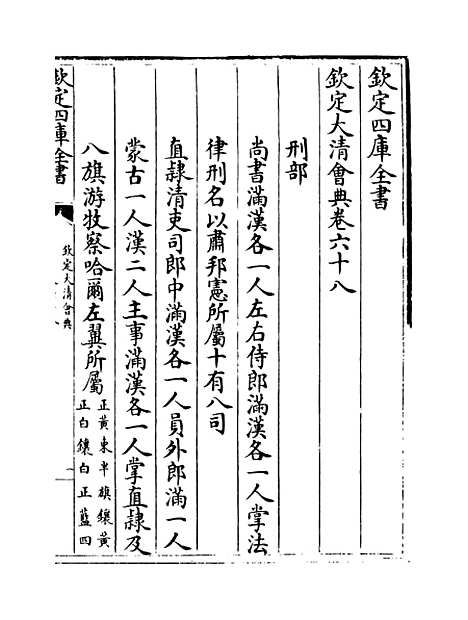 欽定四庫全書
欽定大清會典卷六十八
刑部
尚書滿漢各一人左右侍郎滿漢各一人掌法
律刑名以肅邦憲所屬十有八司
直隷清吏司郎中滿漢各一人員外郎滿一人
蒙古一人漢二人主事滿漢各一人掌直隷及
八旗游牧察哈爾左翼所屬
正黃東半旗鑲黃
正白鑲白正藍四
欽定四庫全書
欽定大清會典
一